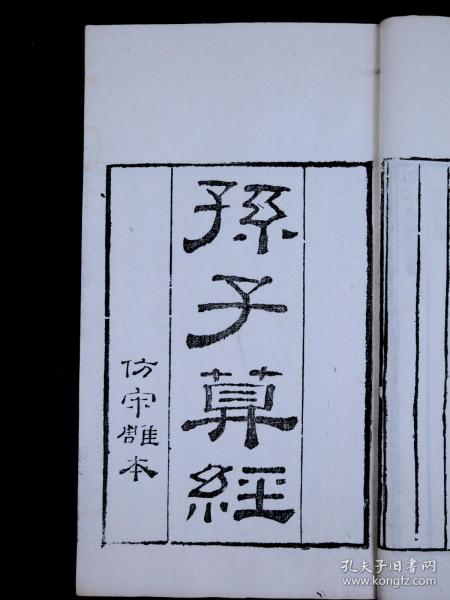 孫子算經
仿宋雕本
孔夫子旧书网
www.kongfz.com